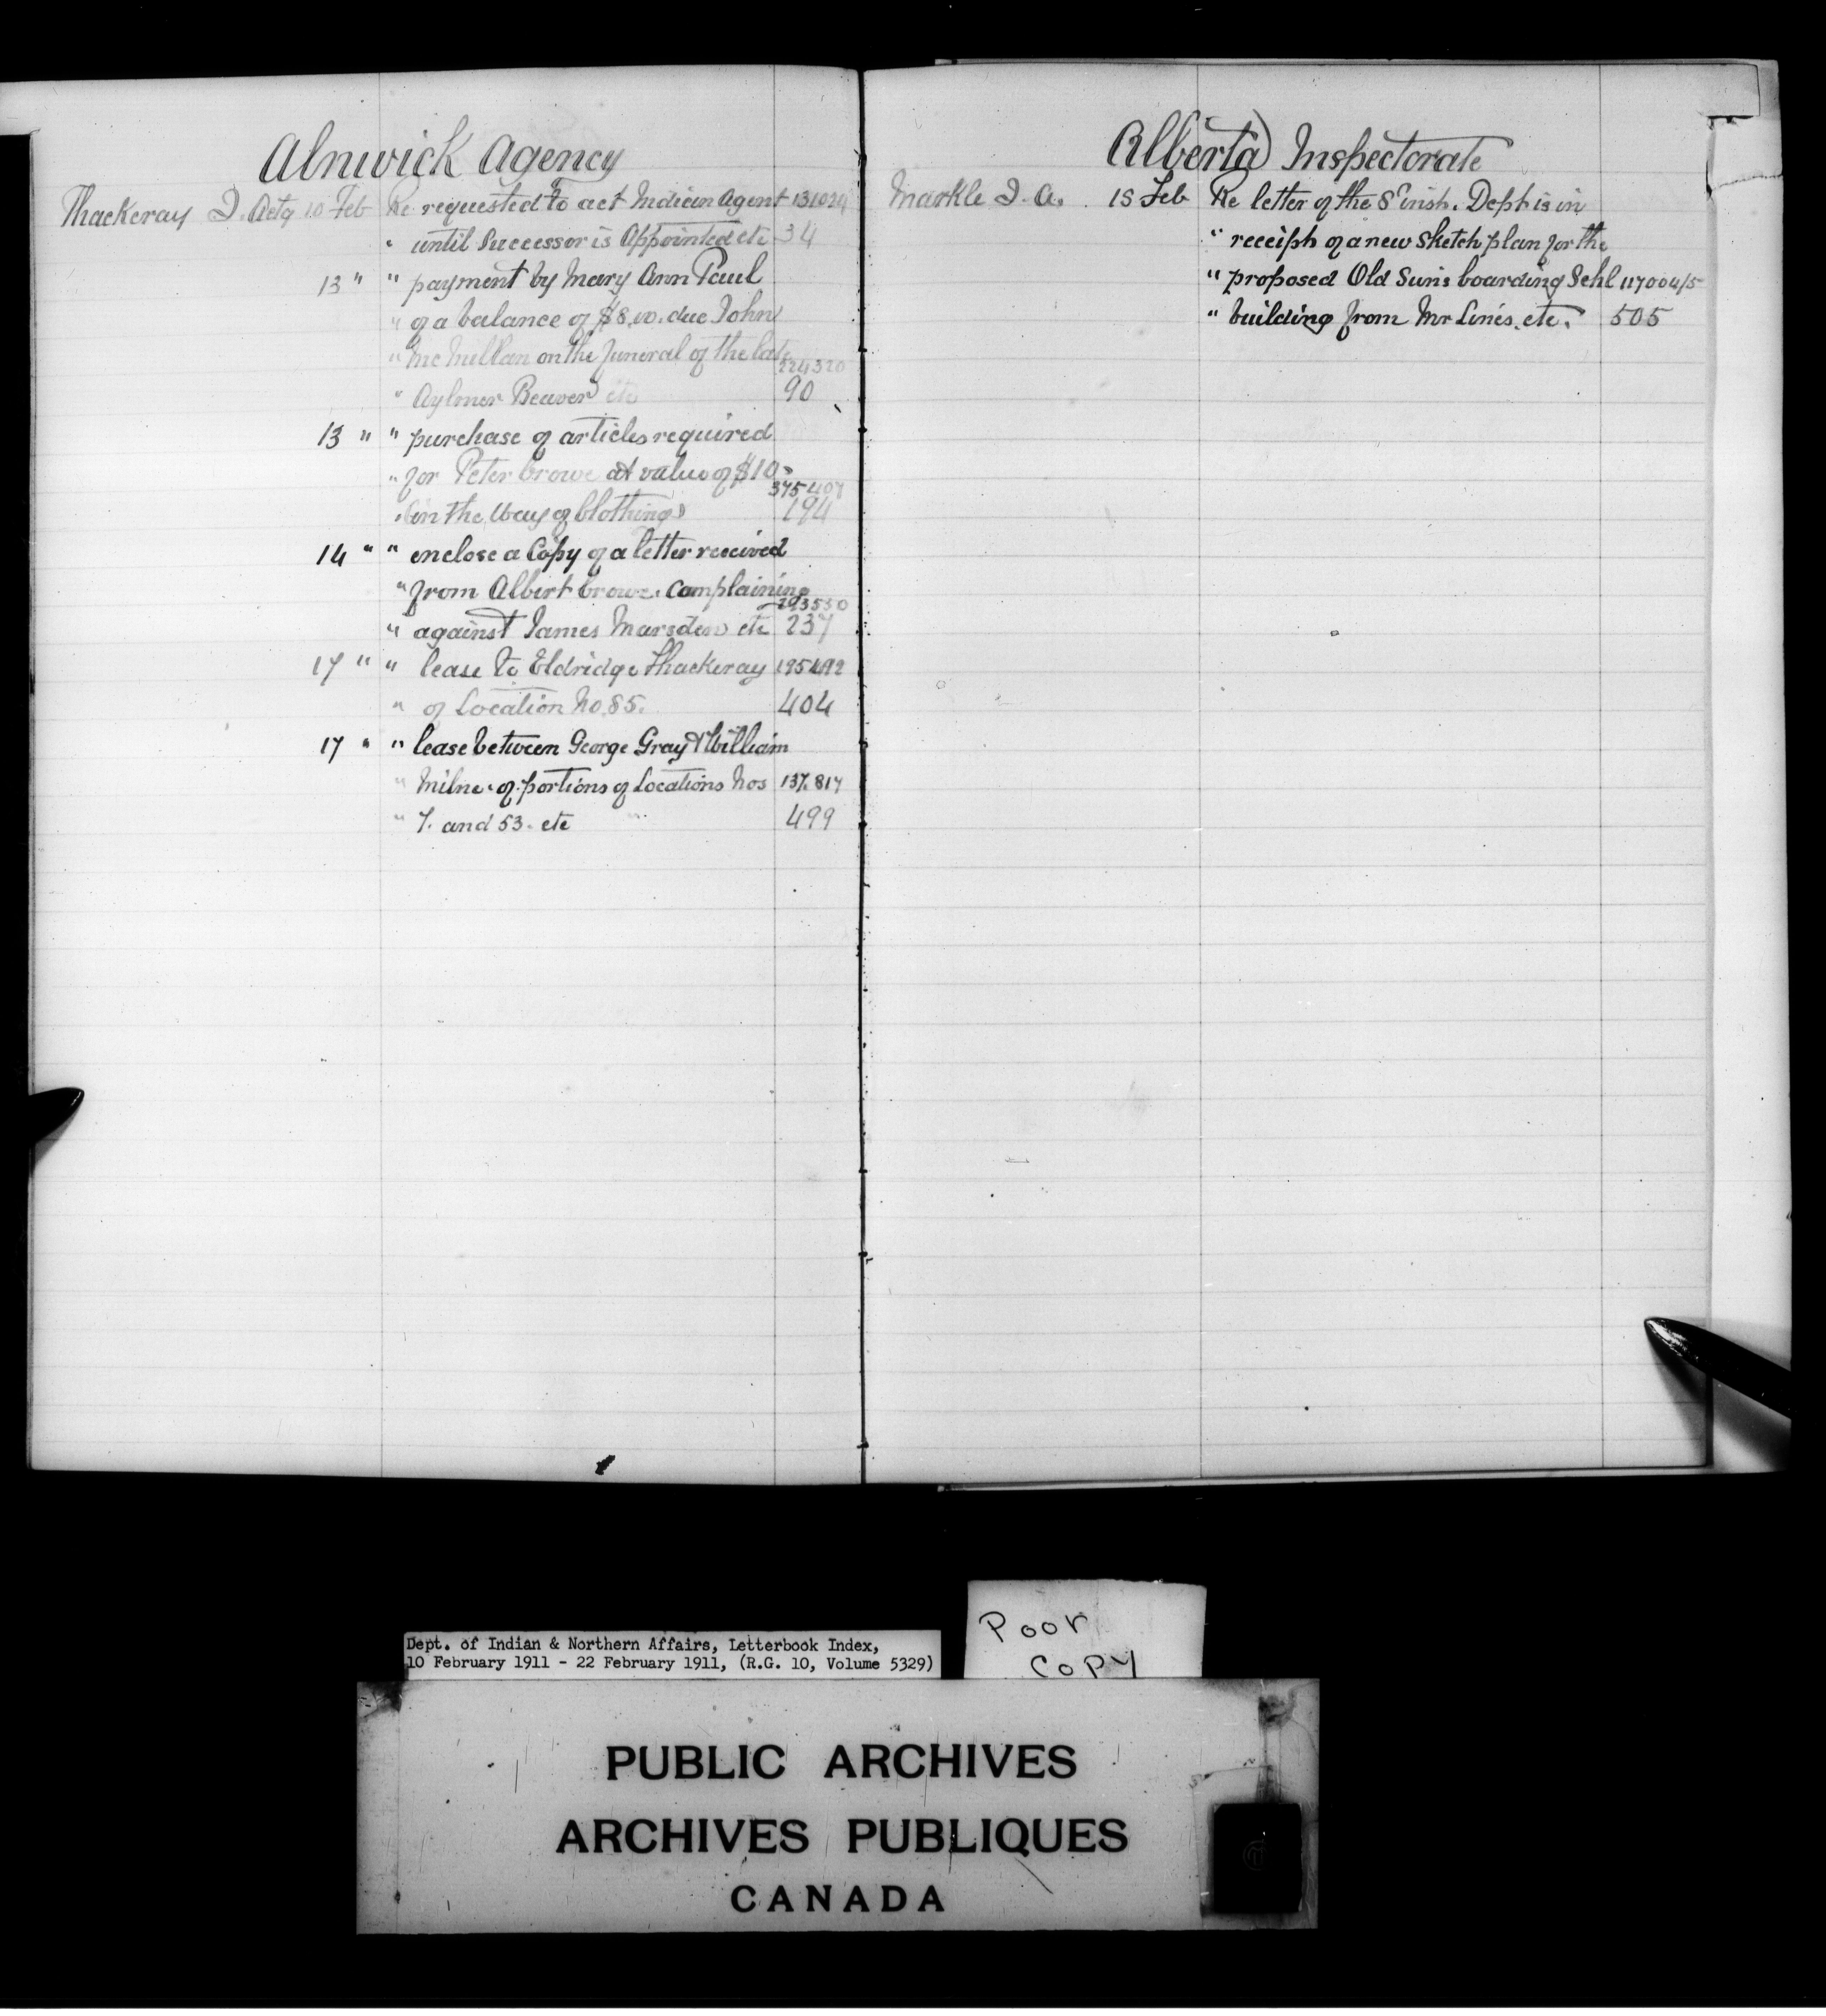 Alnwick Agency
Thackeray J. Actg 10 Feb Re requested to act Indian Agent 131024
" until Successor is Appointed etc 34
13 " " payment by Mary Ann Paul
" of a balance of $8.00. due John
" McMillan on the funeral of the late 224320
" Aylmer Beaver etc 90
13 " " purchase of articles required
" for Peter Crowe at value of $10. 375407
" in the Way of Clothing 194
14 " " enclose a Copy of a letter received
" from Albert Crowe. Complaining 293530
" against James Marsden etc 237
17 " " lease to Eldridge Thackeray 195492
" of Location No. 85. 404
17 " " lease between George Gray & William
" Milne. of portions of Locations Nos 137.817
" 7. and 53. etc 499
Alberta Inspectorate
Markle J. A. 18 Feb Re letter of the 8th inst. Dept is in
" receipt of a new Sketch plan for the
" proposed Old Sun's boarding Schl 117004/5
" building from Mr Lines. etc. 505
Poor
Copy
Dept. of Indian & Northern Affairs, Letterbook Index,
10 February 1911 - 22 February 1911, (R.G. 10, Volume 5329)
PUBLIC ARCHIVES
ARCHIVES PUBLIQUES
CANADA